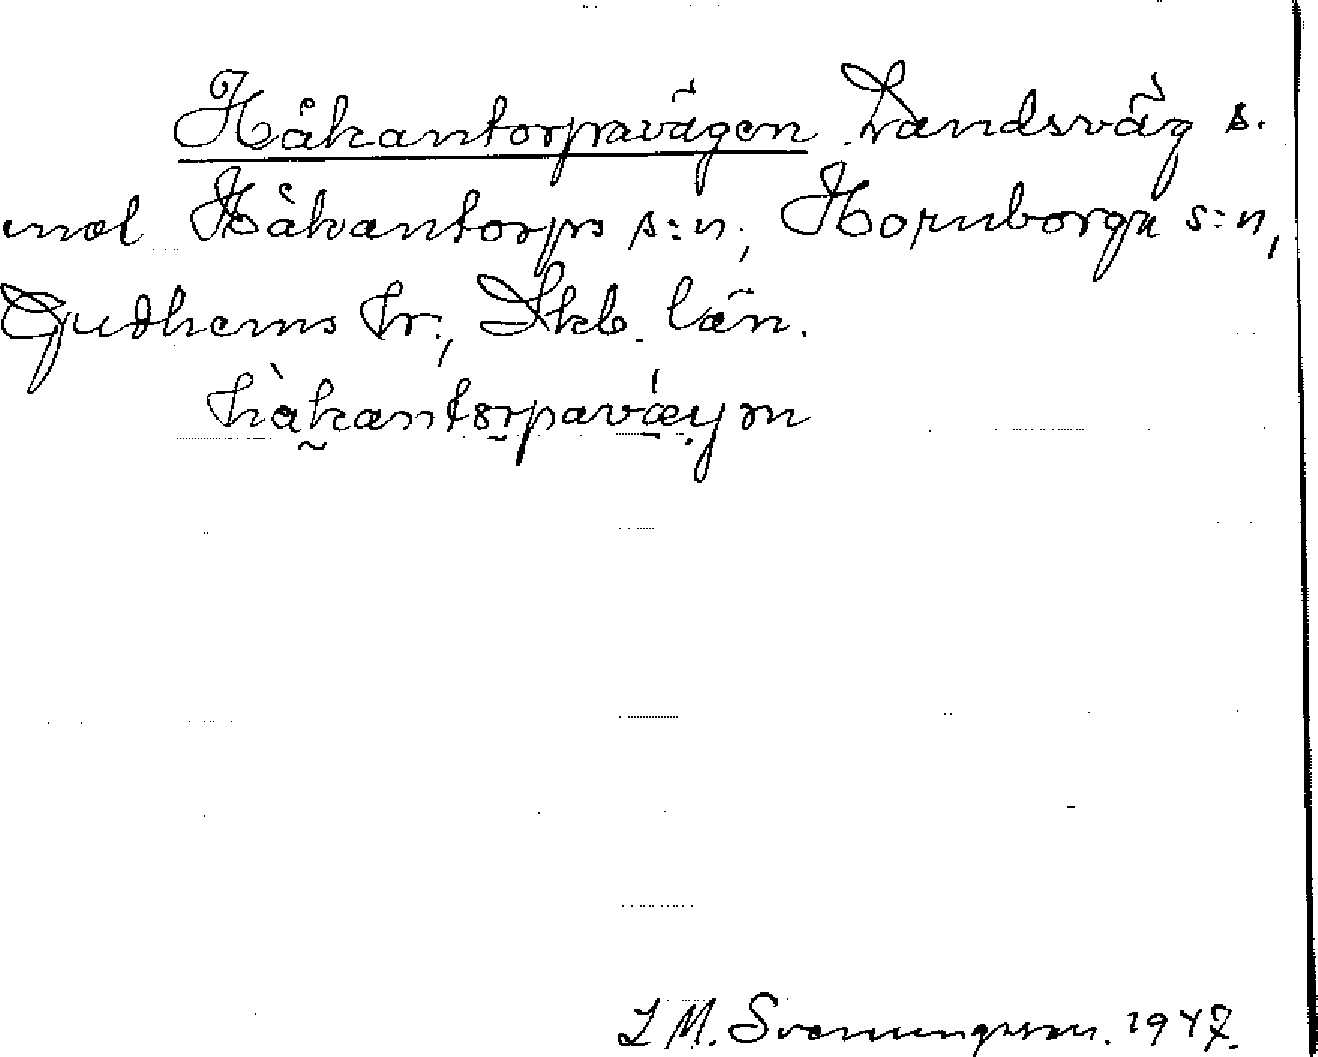 Håkantorpavägen. Landsväg s.
mot Håkantorps s:n, Hornborga s:n,
Gudhems hr., Skb. län.
hàkantorpavæyən
I M. Svenungsson. 1947.